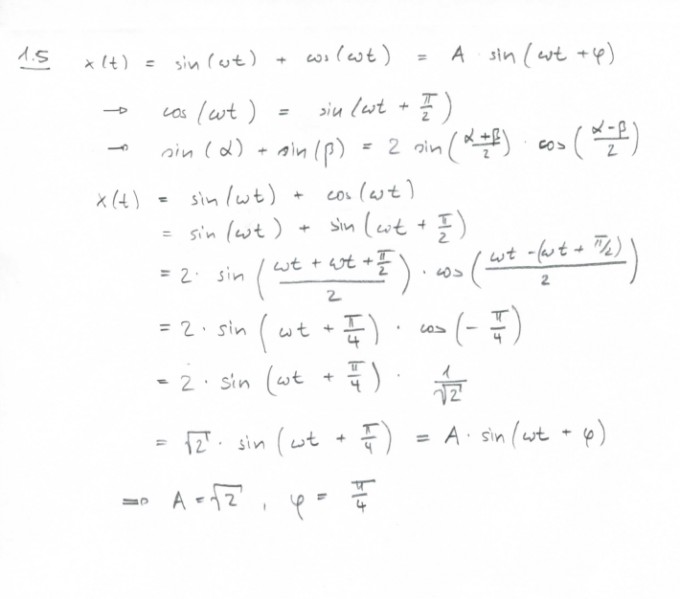 1.5 x(t) = sin(ωt) + cos(ωt) = A · sin(ωt + φ)
→ cos(ωt) = sin(ωt + π/2)
→ sin(α) + sin(β) = 2 sin((α+β)/2) · cos((α-β)/2)
x(t) = sin(ωt) + cos(ωt)
= sin(ωt) + sin(ωt + π/2)
= 2 · sin((ωt + ωt + π/2)/2) · cos((ωt - (ωt + π/2))/2)
= 2 · sin(ωt + π/4) · cos(-π/4)
= 2 · sin(ωt + π/4) · 1/√2
= √2 · sin(ωt + π/4) = A · sin(ωt + φ)
⇒ A = √2, φ = π/4